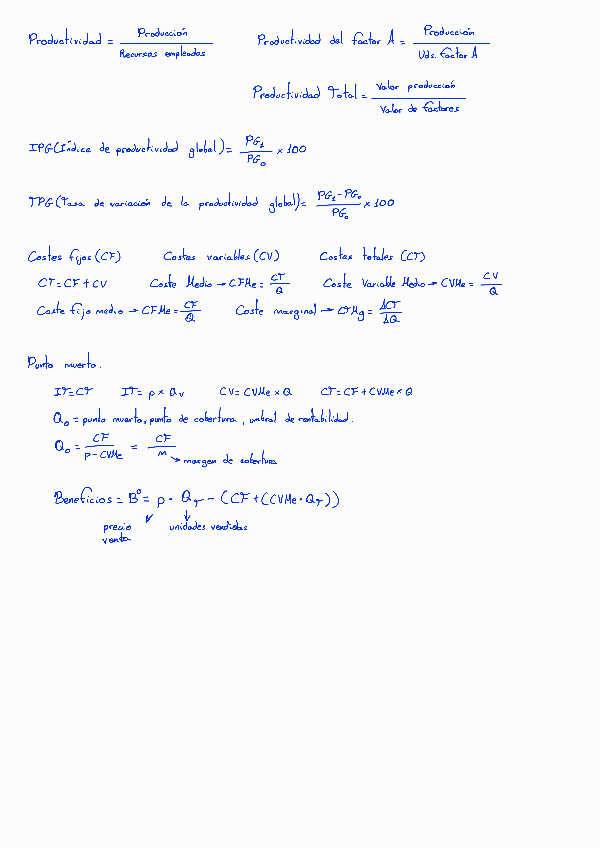 Productividad = Producción / Recursos empleados    Productividad del factor A = Producción / Uds. factor A
Productividad Total = Valor producción / Valor de factores
IPG (Índice de productividad global) = PG₁ / PG₀ × 100
TPG (Tasa de variación de la productividad global) = PG₁ - PG₀ / PG₀ × 100
Costes fijos (CF)    Costes variables (CV)    Costes totales (CT)
CT = CF + CV    Coste Medio → CFMe = CT / Q    Coste Variable Medio → CVMe = CV / Q
Coste fijo medio → CFMe = CF / Q    Coste marginal → CTMg = ΔCT / ΔQ
Punto muerto.
IT = CT    IT = p × Qv    CV = CVMe × Q    CT = CF + CVMe × Q
Q₀ = punto muerto, punto de cobertura, umbral de rentabilidad.
Q₀ = CF / p - CVMe = CF / m
→ margen de cobertura
Beneficios = Bº = p · QT - (CF + (CVMe · QT))
precio venta    unidades vendidas